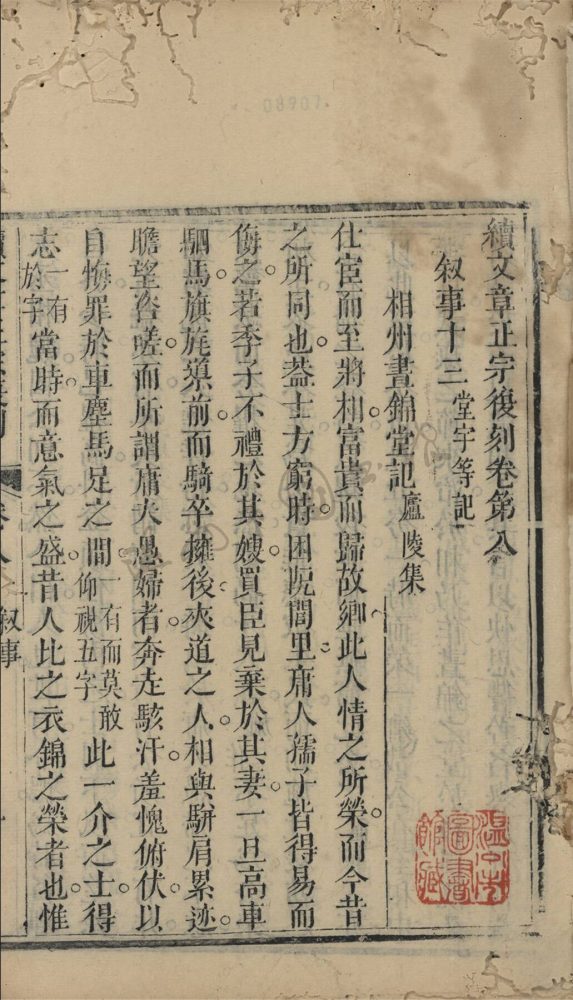 續文章正宗復刻卷第八
叙事十三 堂宇等記
相州晝錦堂記 廬陵集
仕宦而至將相富貴而歸故鄉此人情之所榮而今昔
之所同也葢士方窮時困阨閭里庸人孺子皆得易而
侮之若季子不禮於其嫂買臣見棄於其妻一旦高車
駟馬旗旄導前而騎卒擁後夾道之人相與駢肩累迹
瞻望咨嗟而所謂庸夫愚婦者奔走駭汗羞愧俯伏以
自悔罪於車塵馬足之間一有而莫敢仰視五字此一介之士得
志一有於字當時而意氣之盛昔人比之衣錦之榮者也惟
卷八 叙事
08907
圖書
館藏